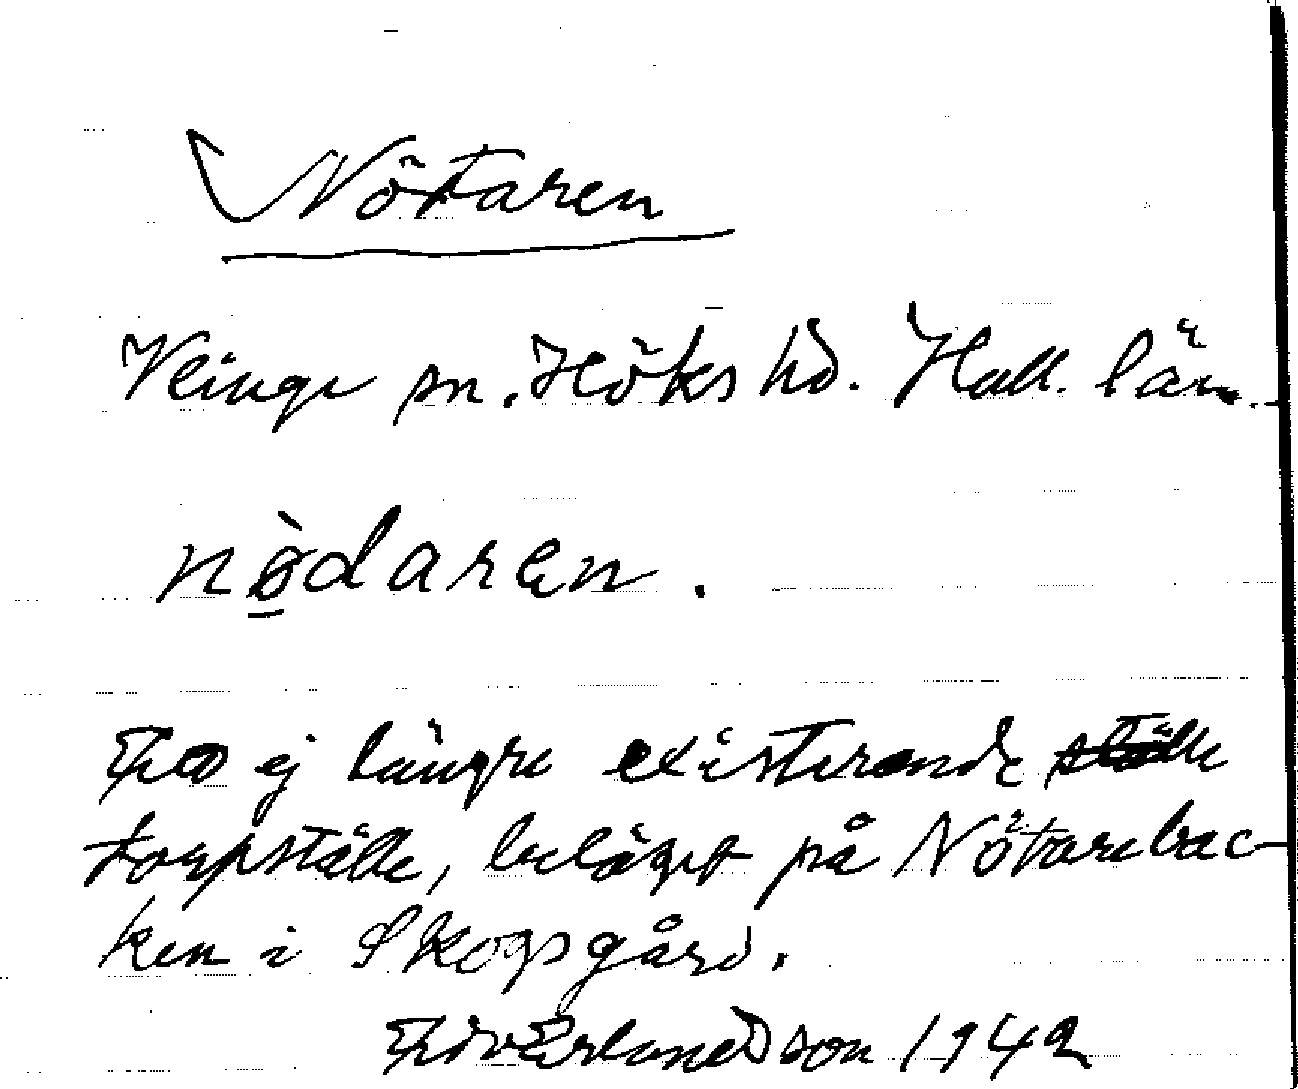 Nötaren
Veinge sn. Höks hd. Hall. län.
nö̀daren.
Ett ej längre existerande
torpställe, beläget på Nötarebac-
ken i Skogsgård.
Edv Erlandsson 1942